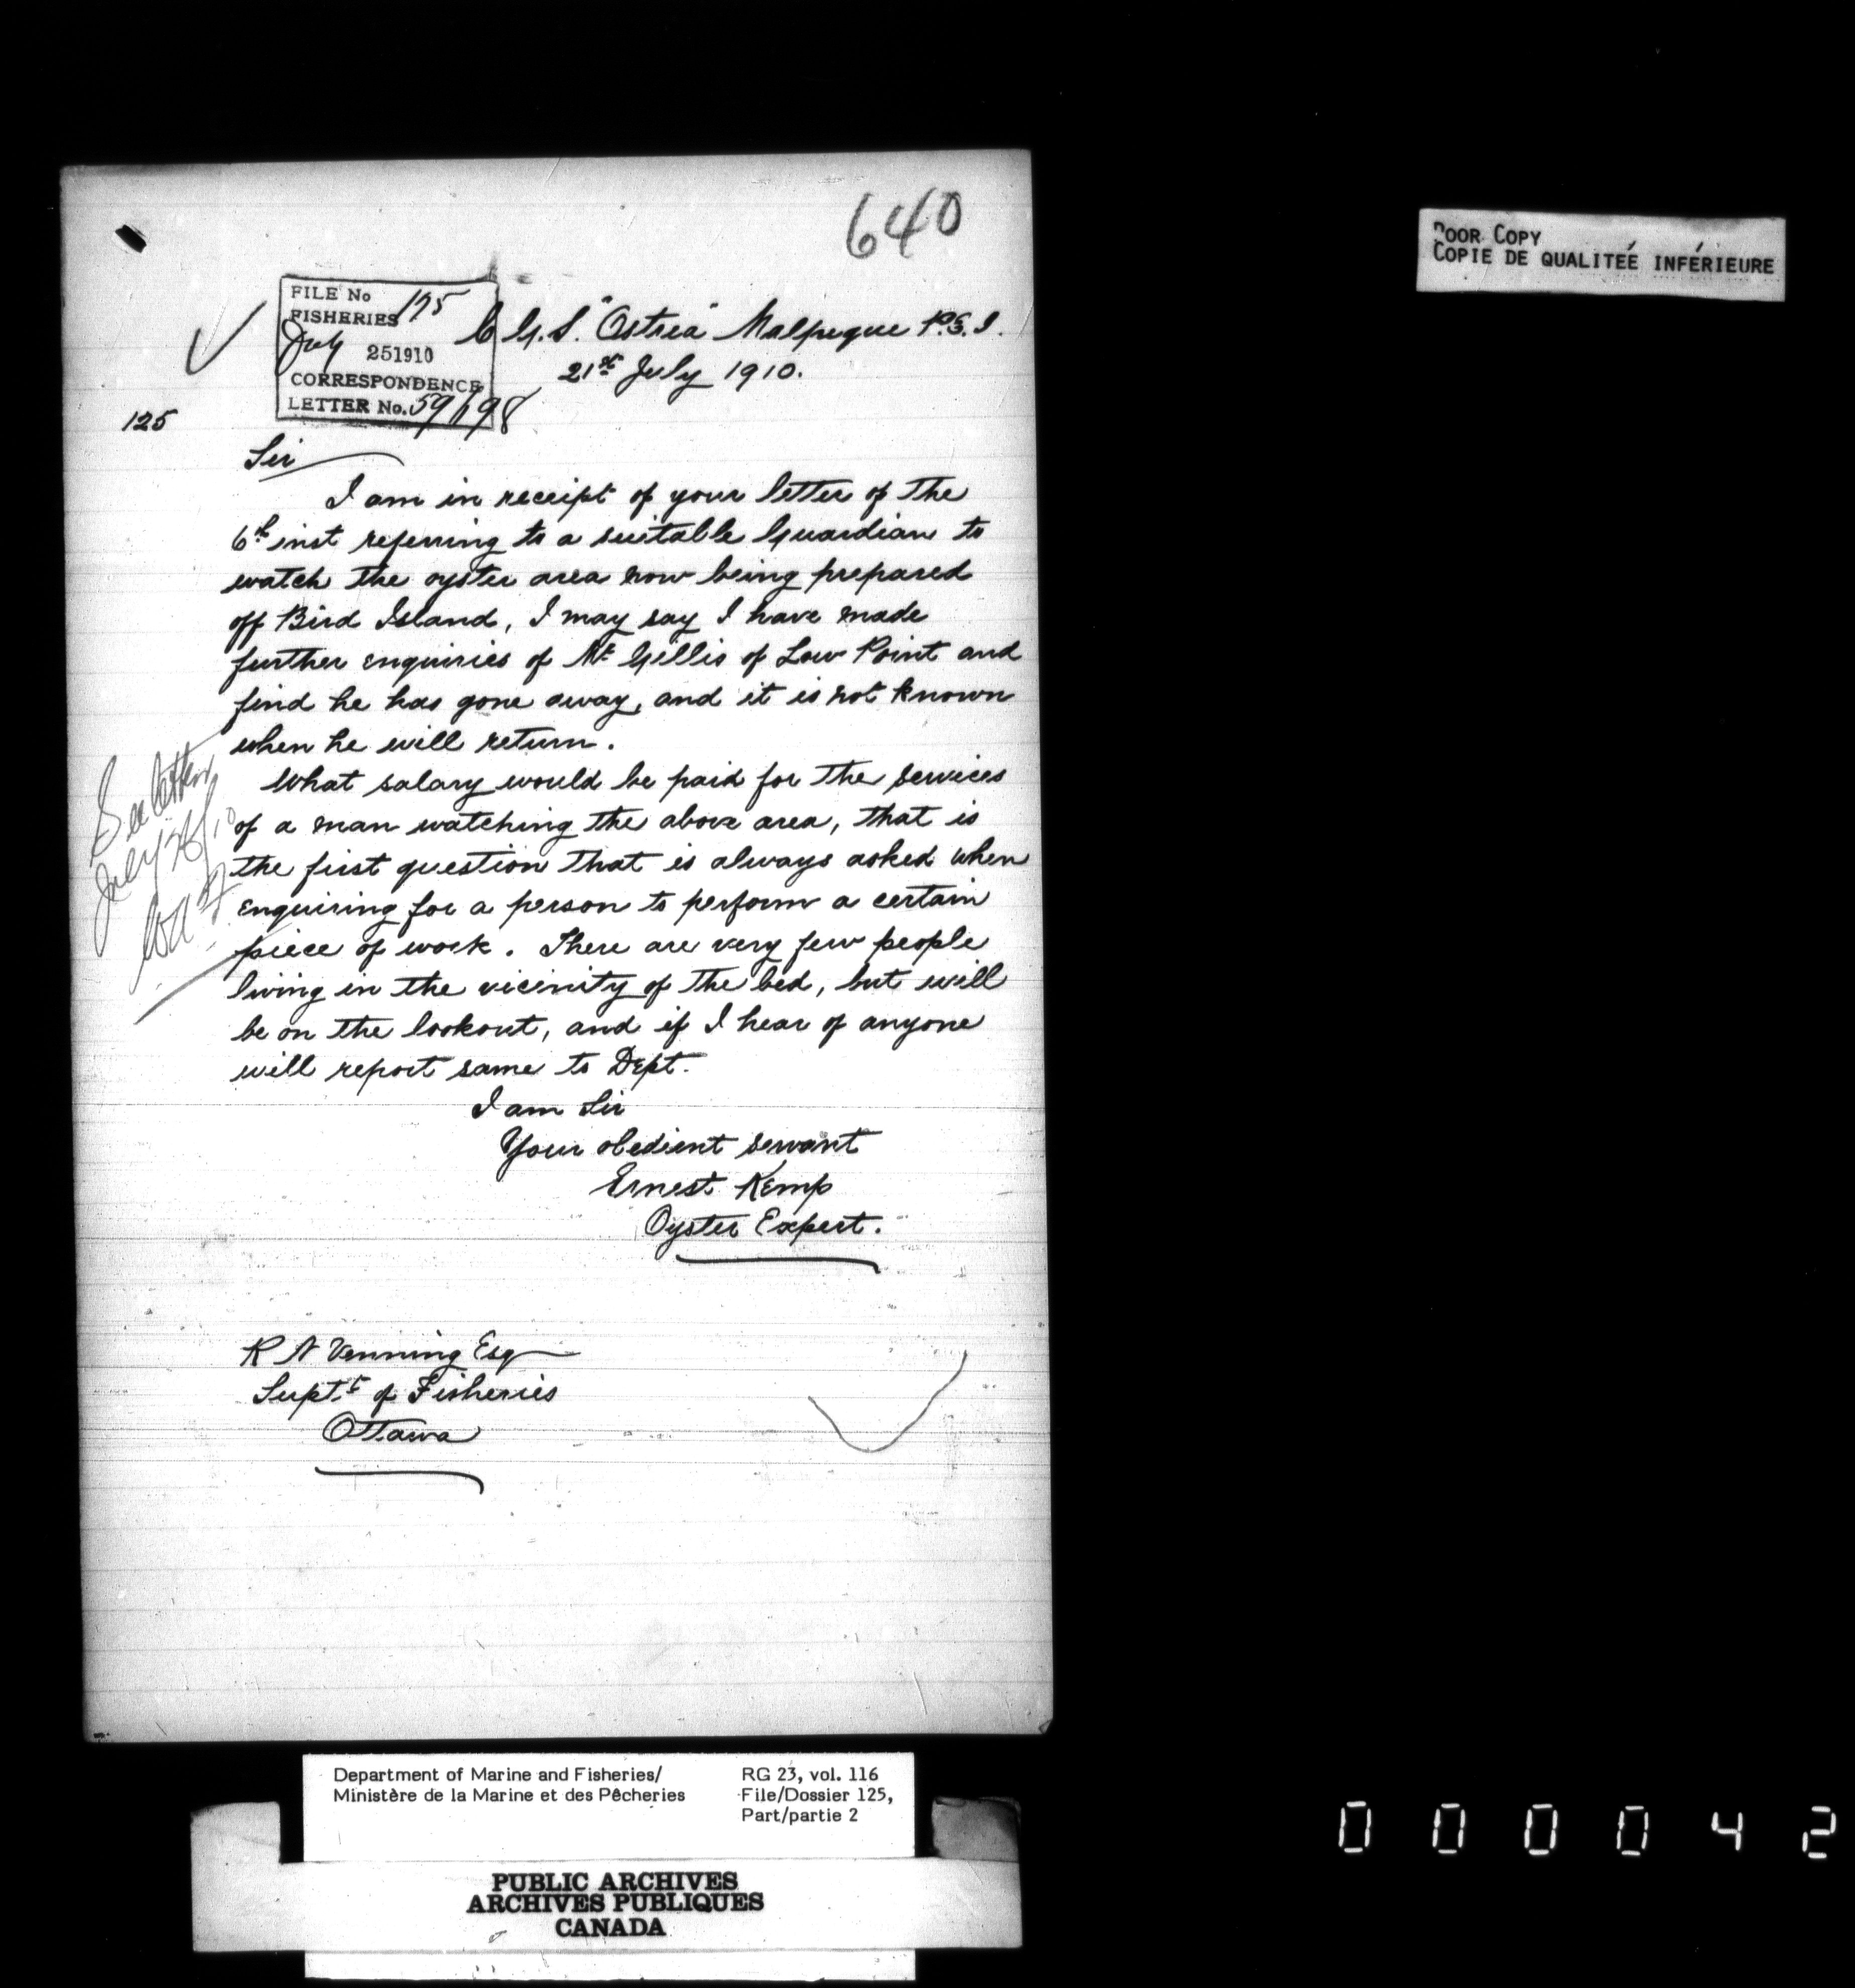 640
POOR COPY
COPIE DE QUALITEÉ INFÉRIEURE
FILE No 125
FISHERIES
July 25 1910
CORRESPONDENCE
LETTER No.
C.G.S. "Ostrea" Malpeque P.E.I.
21st July 1910.
125
Sir
I am in receipt of your letter of the
6th inst referring to a suitable Guardian to
watch the oyster area now being prepared
off Bird Island, I may say I have made
further enquiries of Mr Gillis of Low Point and
find he has gone away, and it is not known
when he will return.
What salary would be paid for the services
of a man watching the above area, that is
the first question that is always asked when
enquiring for a person to perform a certain
piece of work. There are very few people
living in the vicinity of the bed, but will
be on the lookout, and if I hear of anyone
will report same to Dept.
See letter
July
I am Sir
Your obedient servant
Ernest Kemp
Oyster Expert.
R N Venning Esq
Supt. of Fisheries
Ottawa
Department of Marine and Fisheries/
Ministère de la Marine et des Pêcheries
RG 23, vol. 116
File/Dossier 125,
Part/partie 2
PUBLIC ARCHIVES
ARCHIVES PUBLIQUES
CANADA
000042